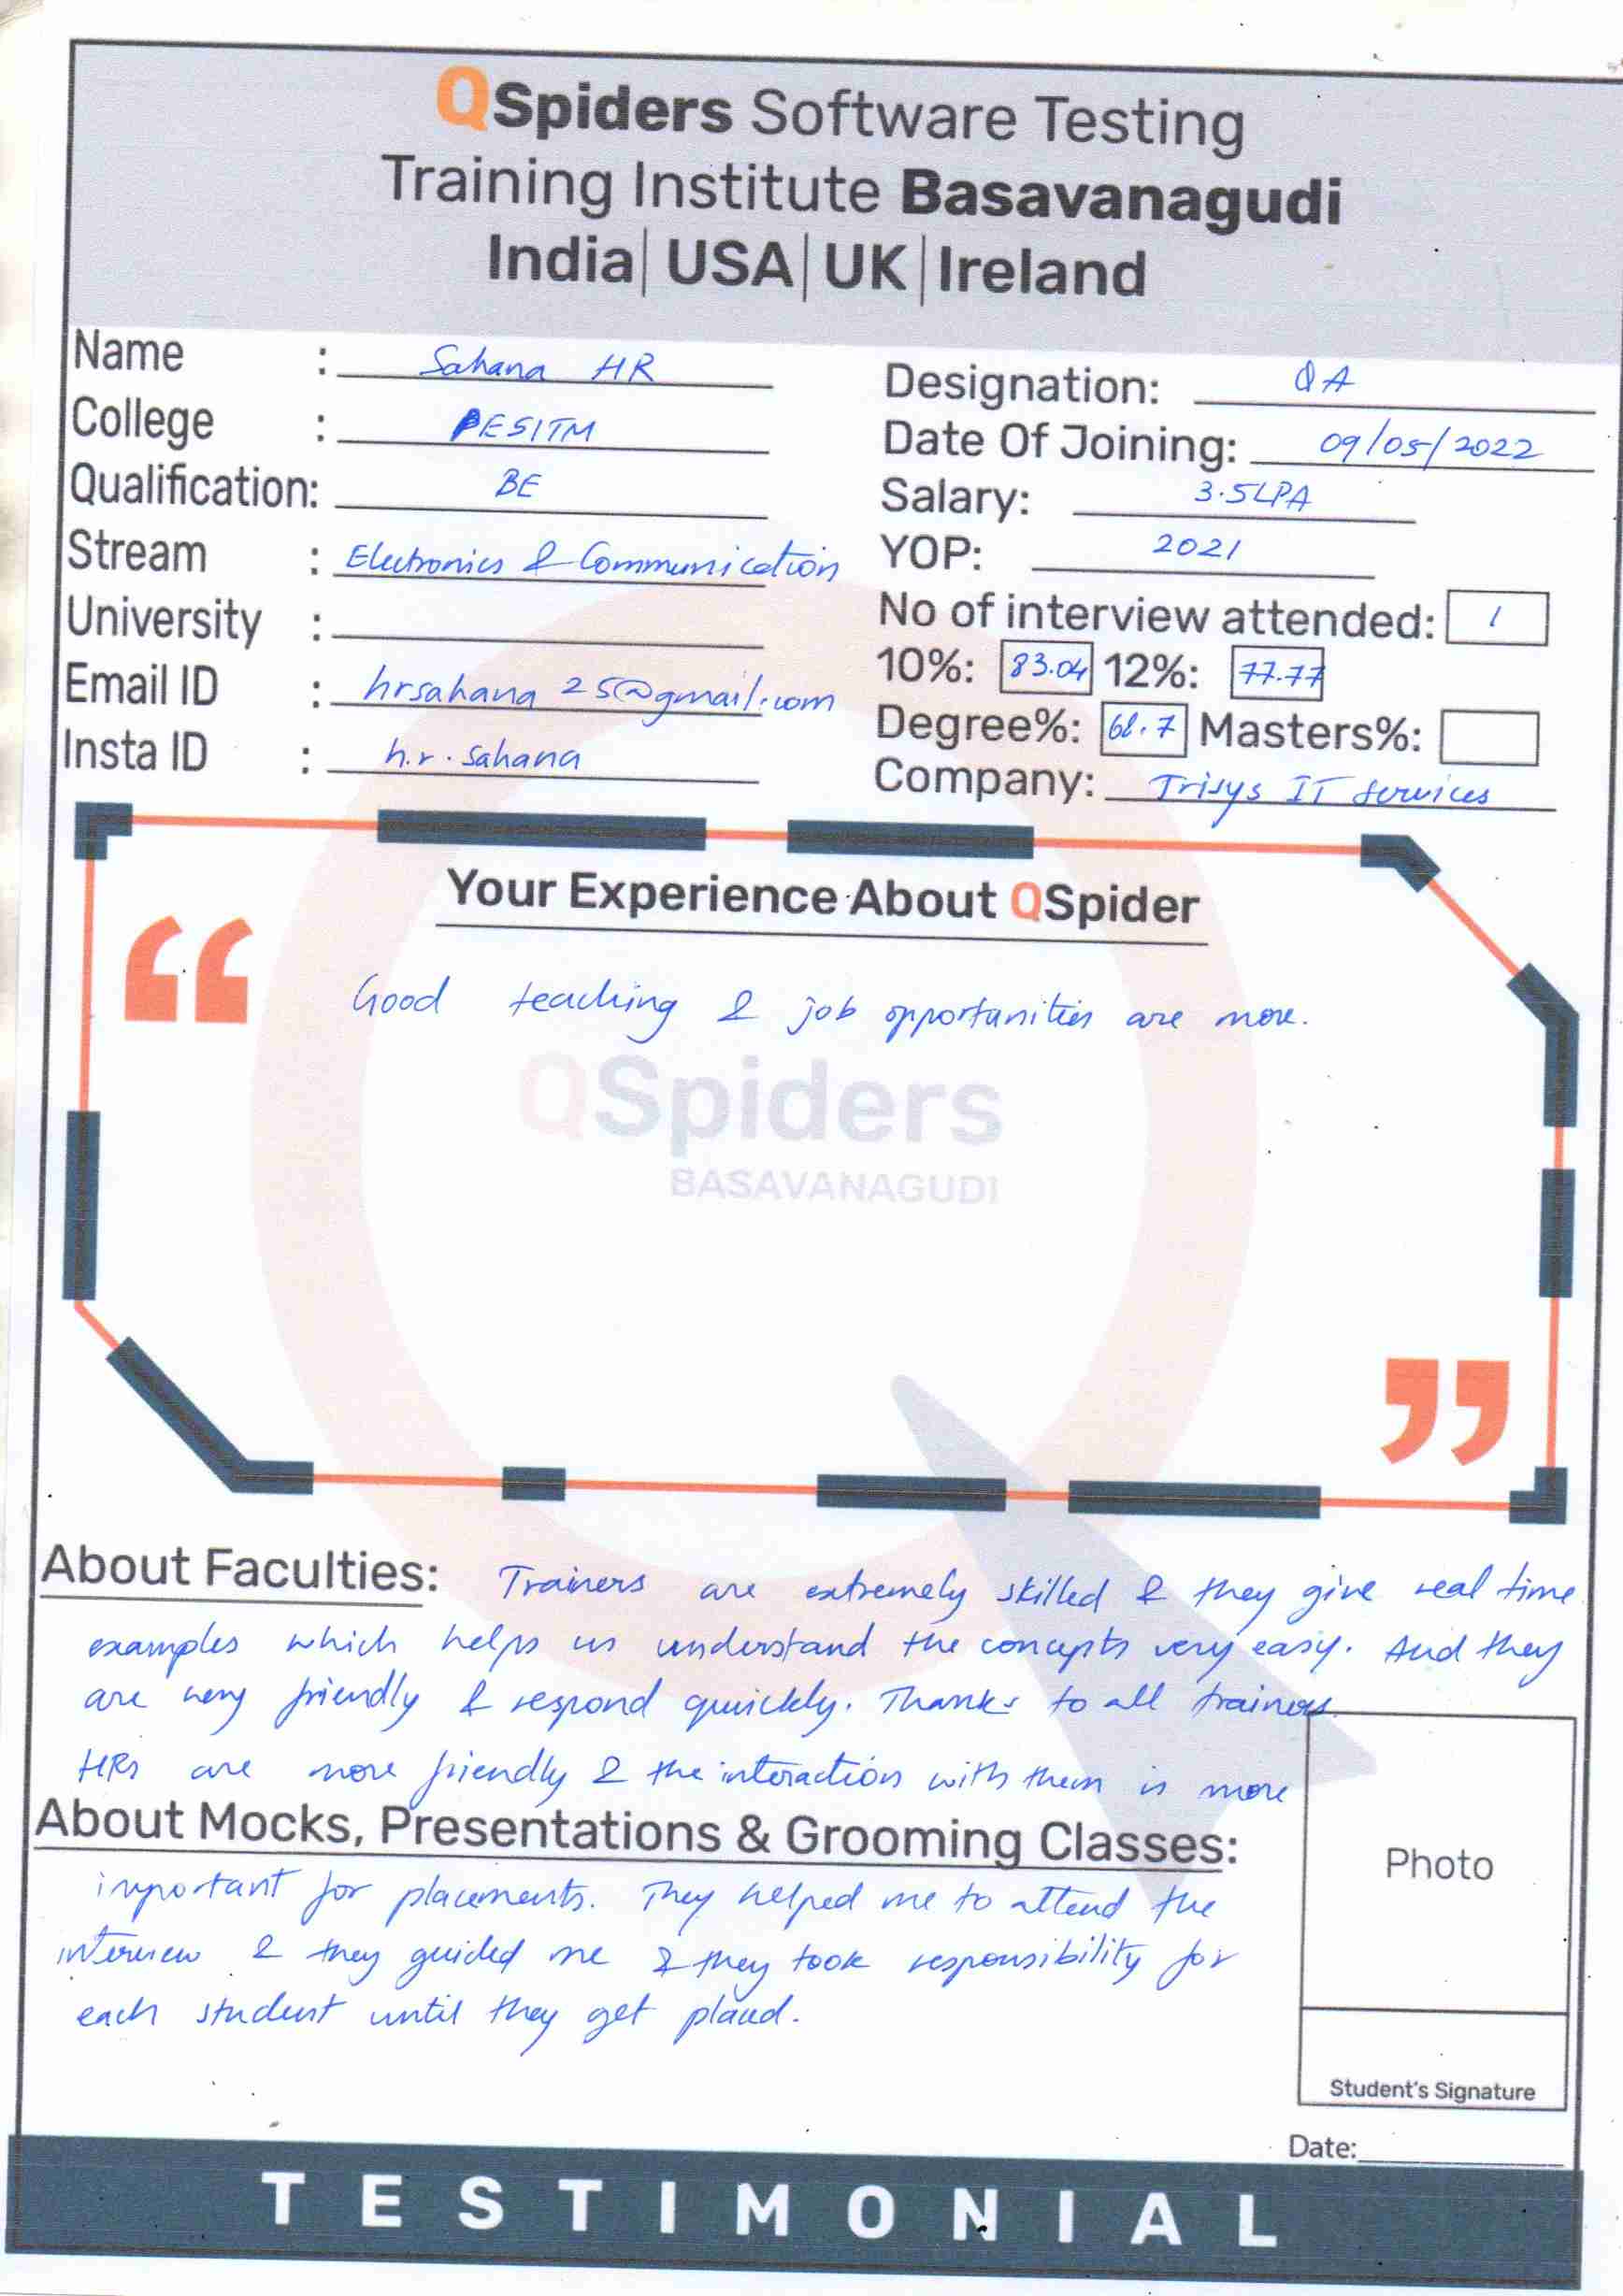 QSpiders Software Testing
Training Institute Basavanagudi
India| USA| UK| Ireland
Name : Sahana HR
College : PESITM
Qualification: BE
Stream : Electronics & Communication
University :
Email ID : hrsahana25@gmail.com
Insta ID : h.r.sahana
Designation: QA
Date Of Joining: 09/05/2022
Salary: 3.5LPA
YOP: 2021
No of interview attended: 1
10%: 83.04 12%: 77.77
Degree%: 68.7 Masters%:
Company: Trisys IT Services
Your Experience About QSpider
“
Good teaching & job opportunities are more.
QSpiders
BASAVANAGUDI
”
About Faculties: Trainers are extremely skilled & they give real time
examples which helps us understand the concepts very easy. And they
are very friendly & respond quickly. Thanks to all trainers.
HRs are more friendly & the interaction with them is more
About Mocks, Presentations & Grooming Classes:
important for placements. They helped me to attend the
interview & they guided me & they took responsibility for
each student until they get placed.
Photo
Student's Signature
Date:
TESTIMONIAL